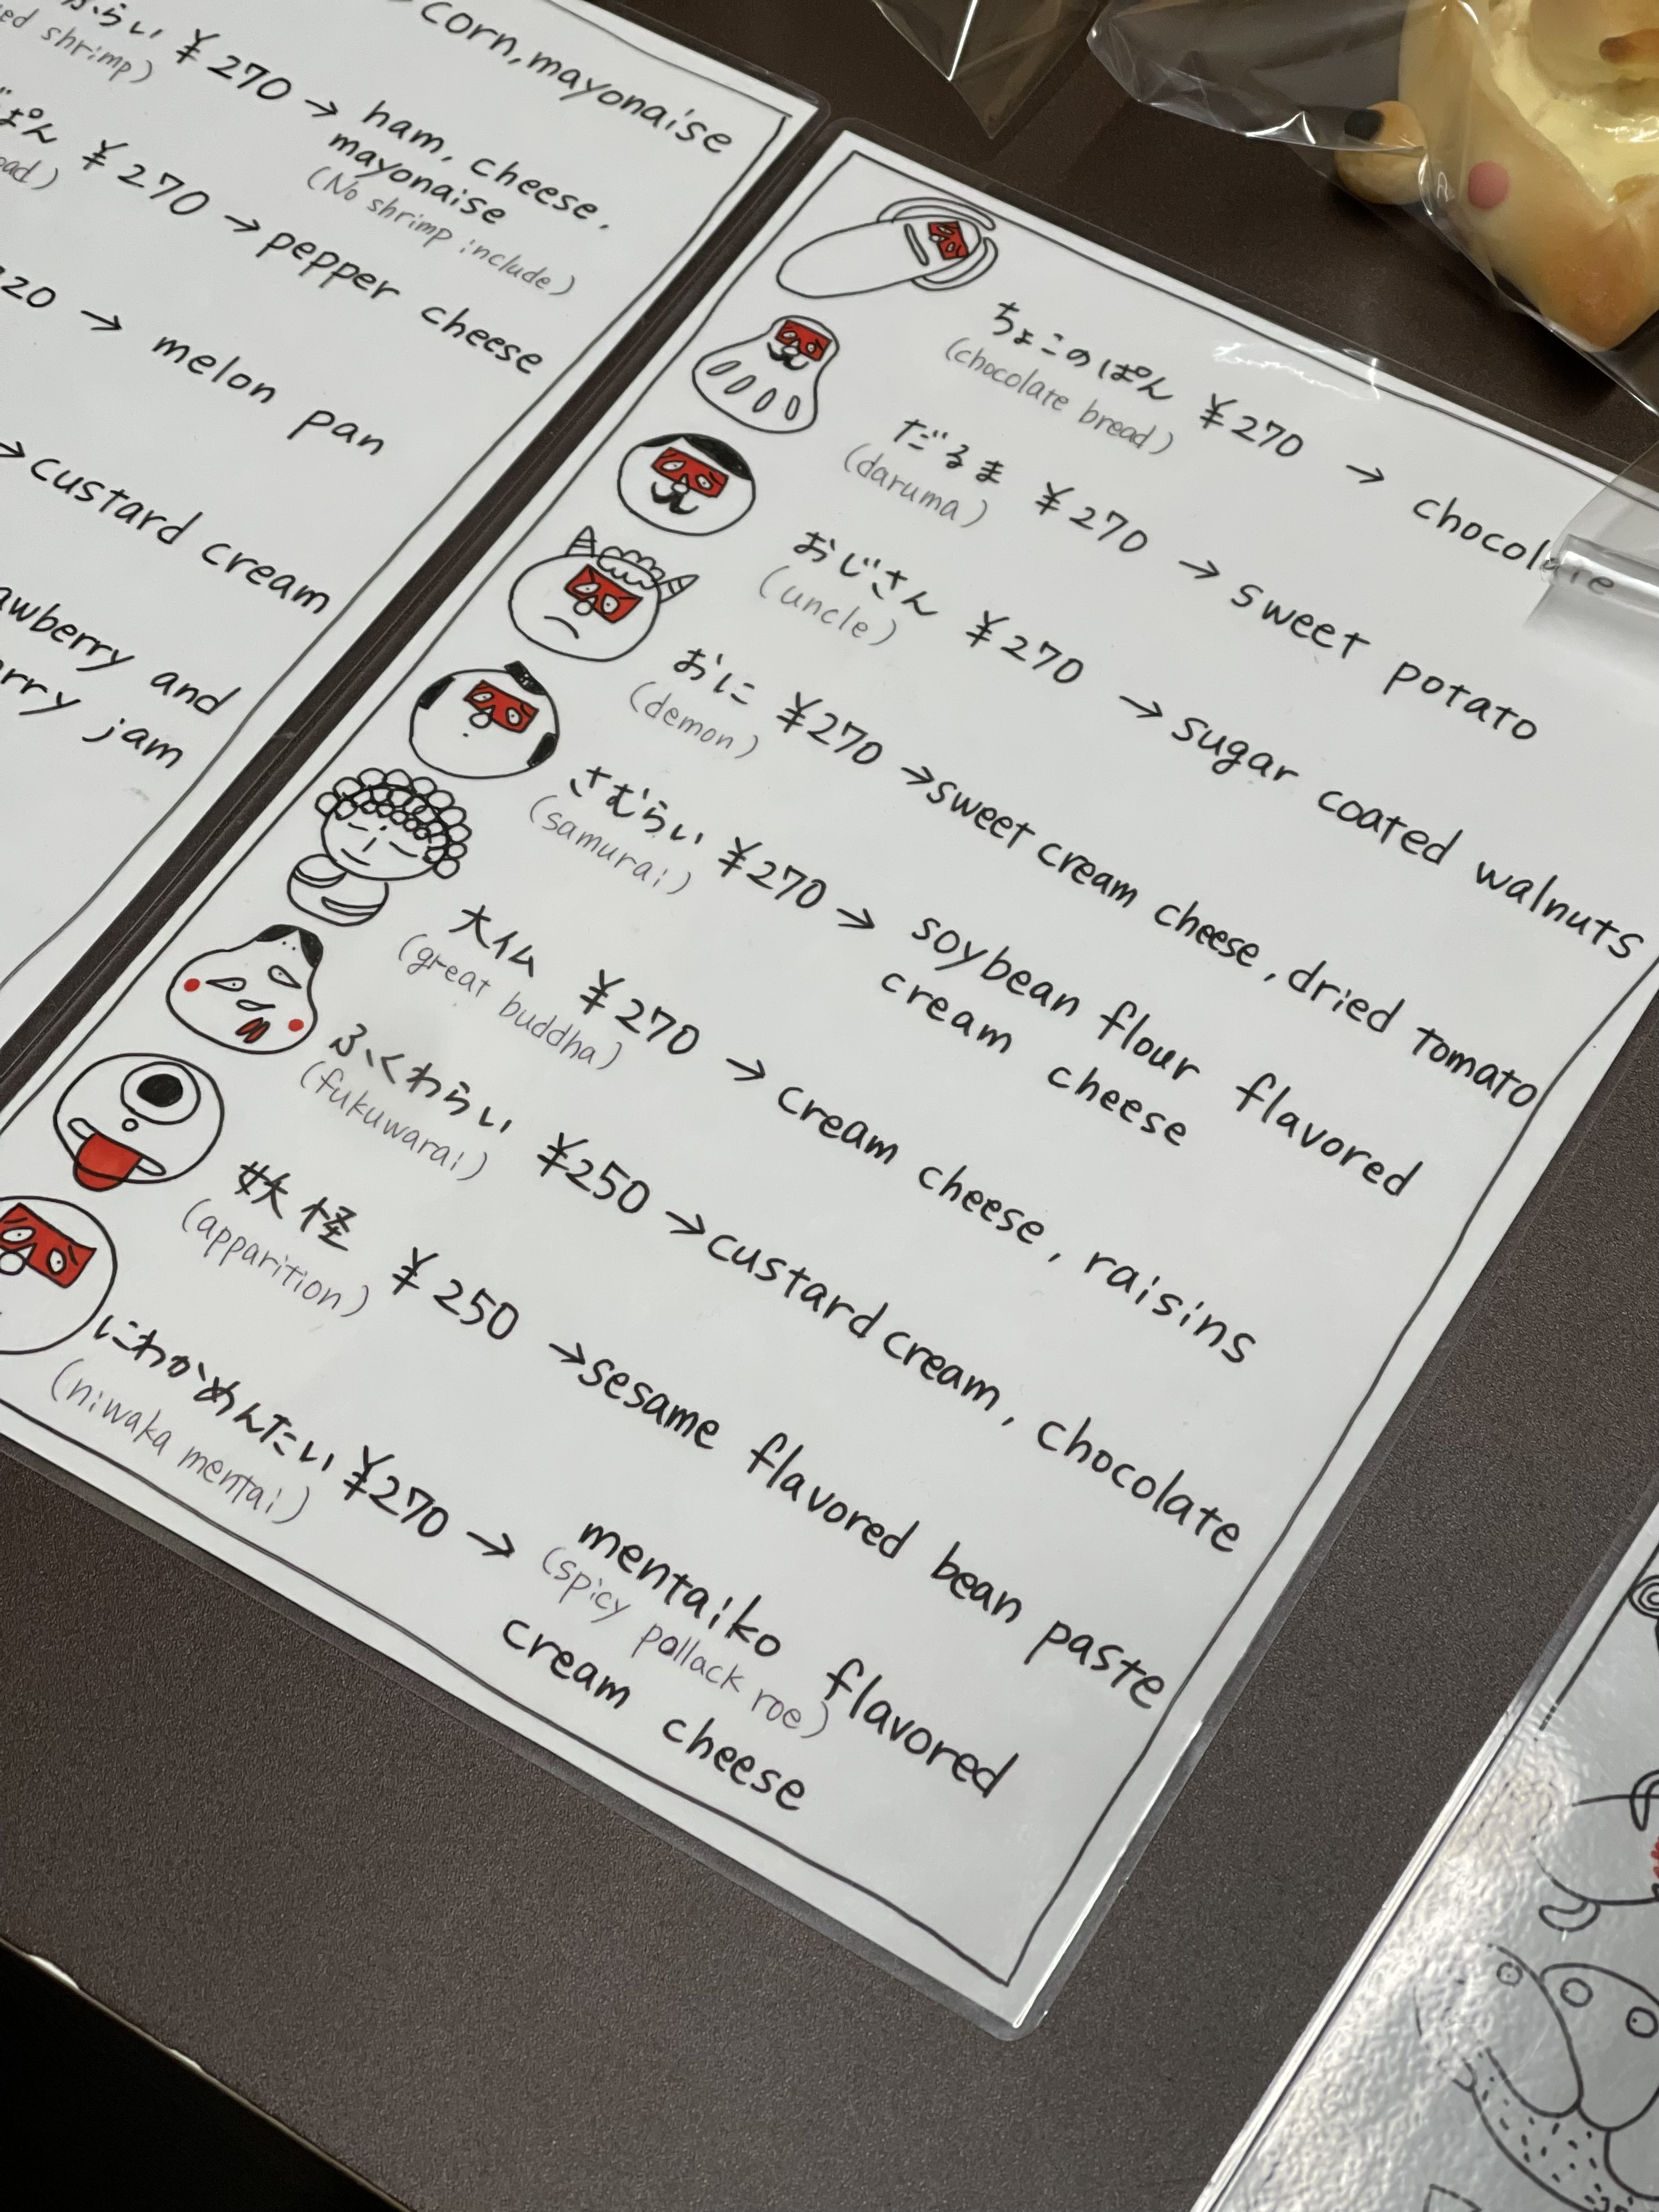 corn, mayonaise
らい ¥270 → ham, cheese,
mayonaise
shrimp)
(No shrimp include)
ぱん ¥270 → pepper cheese
→ melon pan
→ custard cream
and
jam
ちょこのぱん ¥270 → chocolate
(chocolate bread)
だるま ¥270 → sweet potato
(daruma)
おじさん ¥270 → sugar coated walnuts
(uncle)
おに ¥270 → sweet cream cheese, dried tomato
(demon)
さむらい ¥270 → soybean flour flavored
(samurai)
cream cheese
大仏 ¥270 → cream cheese, raisins
(great buddha)
ふくわらい ¥250 → custard cream, chocolate
(fukuwarai)
妖怪 ¥250 → sesame flavored bean paste
(apparition)
にわかめんたい ¥270 → mentaiko flavored
(niwaka mentai)
(spicy pollack roe)
cream cheese